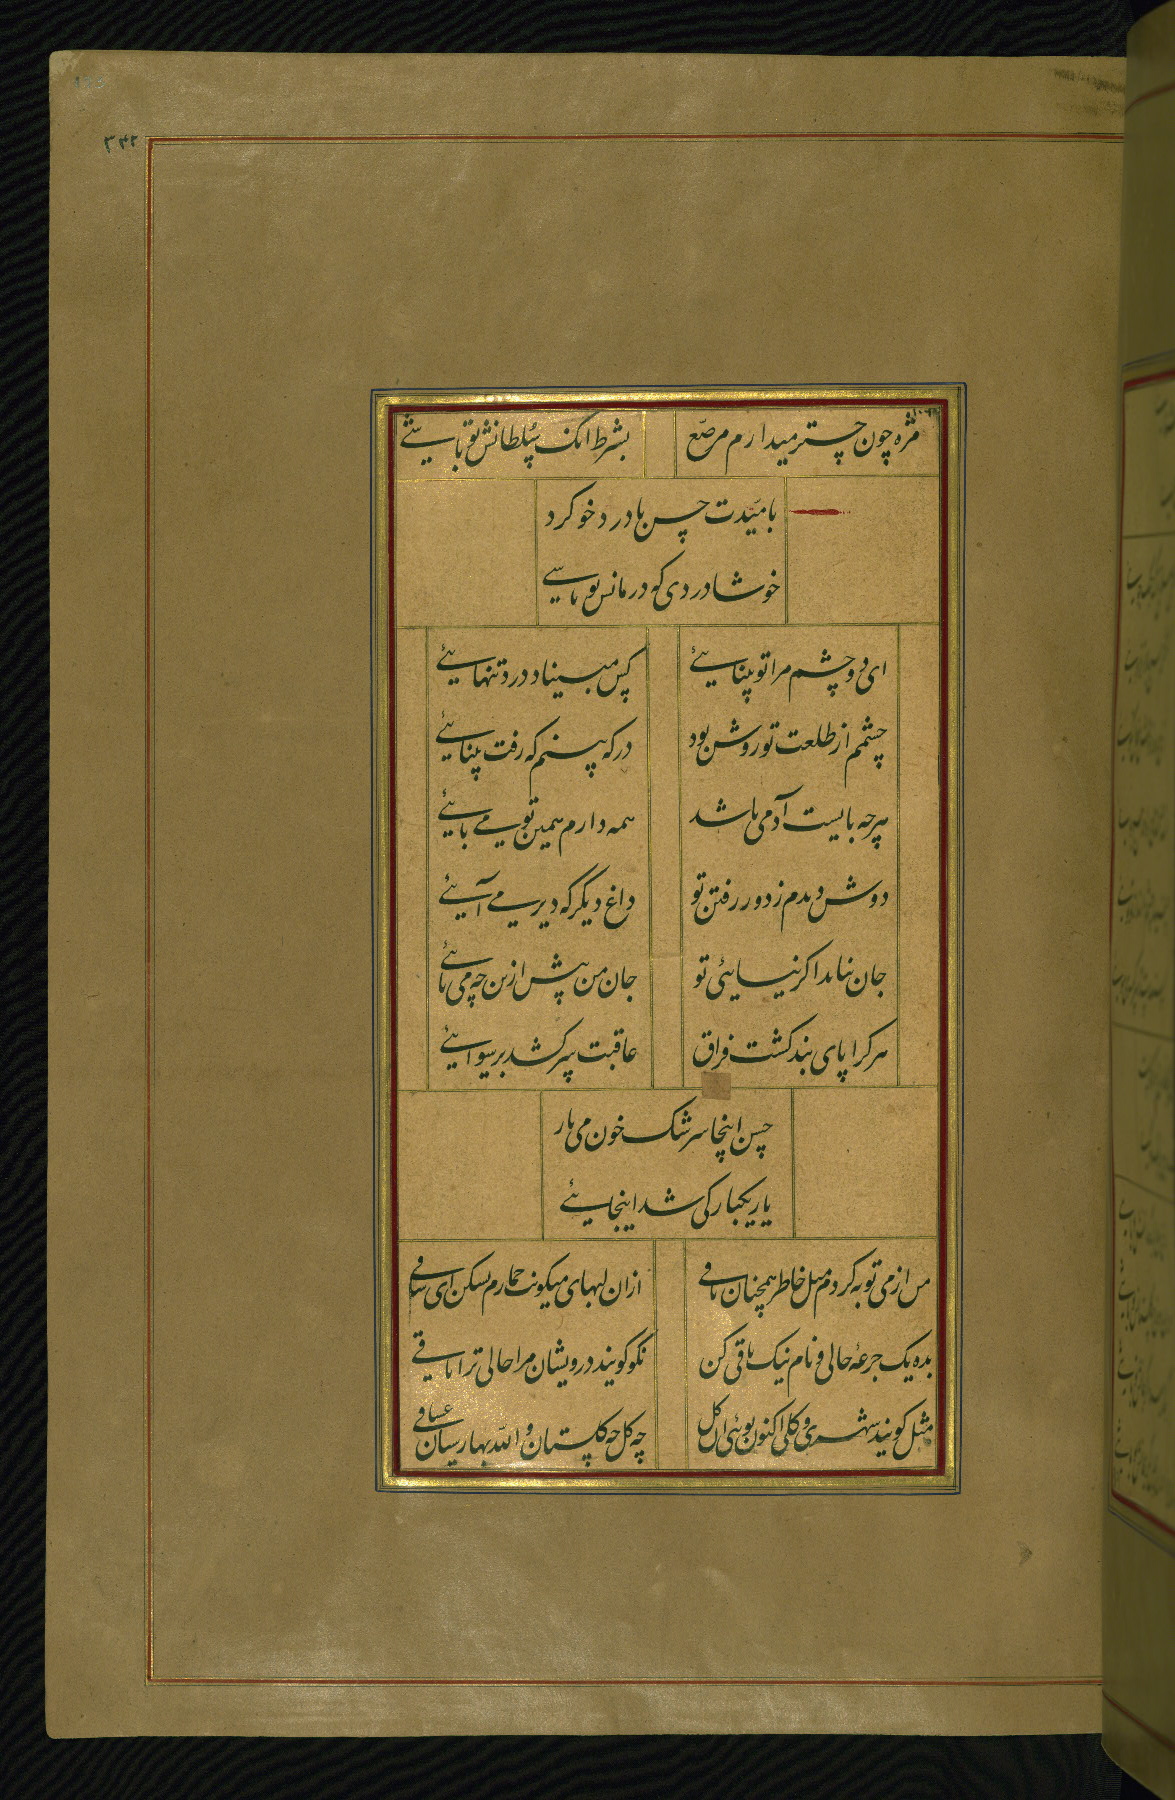 ۳۴۲
مژه چون چتر میدارم مرصّع
بشرط انک سلطانش تو باشی
بامیّدت حسن با درد خو کرد
خوشا دردی که درمانش تو باشی
ای دو چشم مرا تو بینائی
کس مبیناد درد تنهائی
چشمم از طلعت تو روشن بود
در که بینم که رفت بینائی
هرچه بایست آدمی باشد
همه دارم همین تو می بائی
دوش دیدم ز دور رفتن تو
داغ دیگر که دیر می آئی
جان نماند اگر نیایئی تو
جان من پیش ازین چه می پائی
هر کرا پای بند گشت فراق
عاقبت سر کشد برسوائی
حسن اینجا سرشک خون می بار
یار یکبارکی شد اینجائی
من از می توبه کردم میل خاطر همچنان باقی
ازان لبهای میگونت خمارم بشکن ای ساقی
بده یک جرعهٔ حالی و نام نیک باقی کن
نگو گویند درویشان مرا حالی ترا باقی
مثل گویند شهری و گلی اکنون توئی ان گل
چه گل چه گلستان و اللّه بهارستان عشاقی